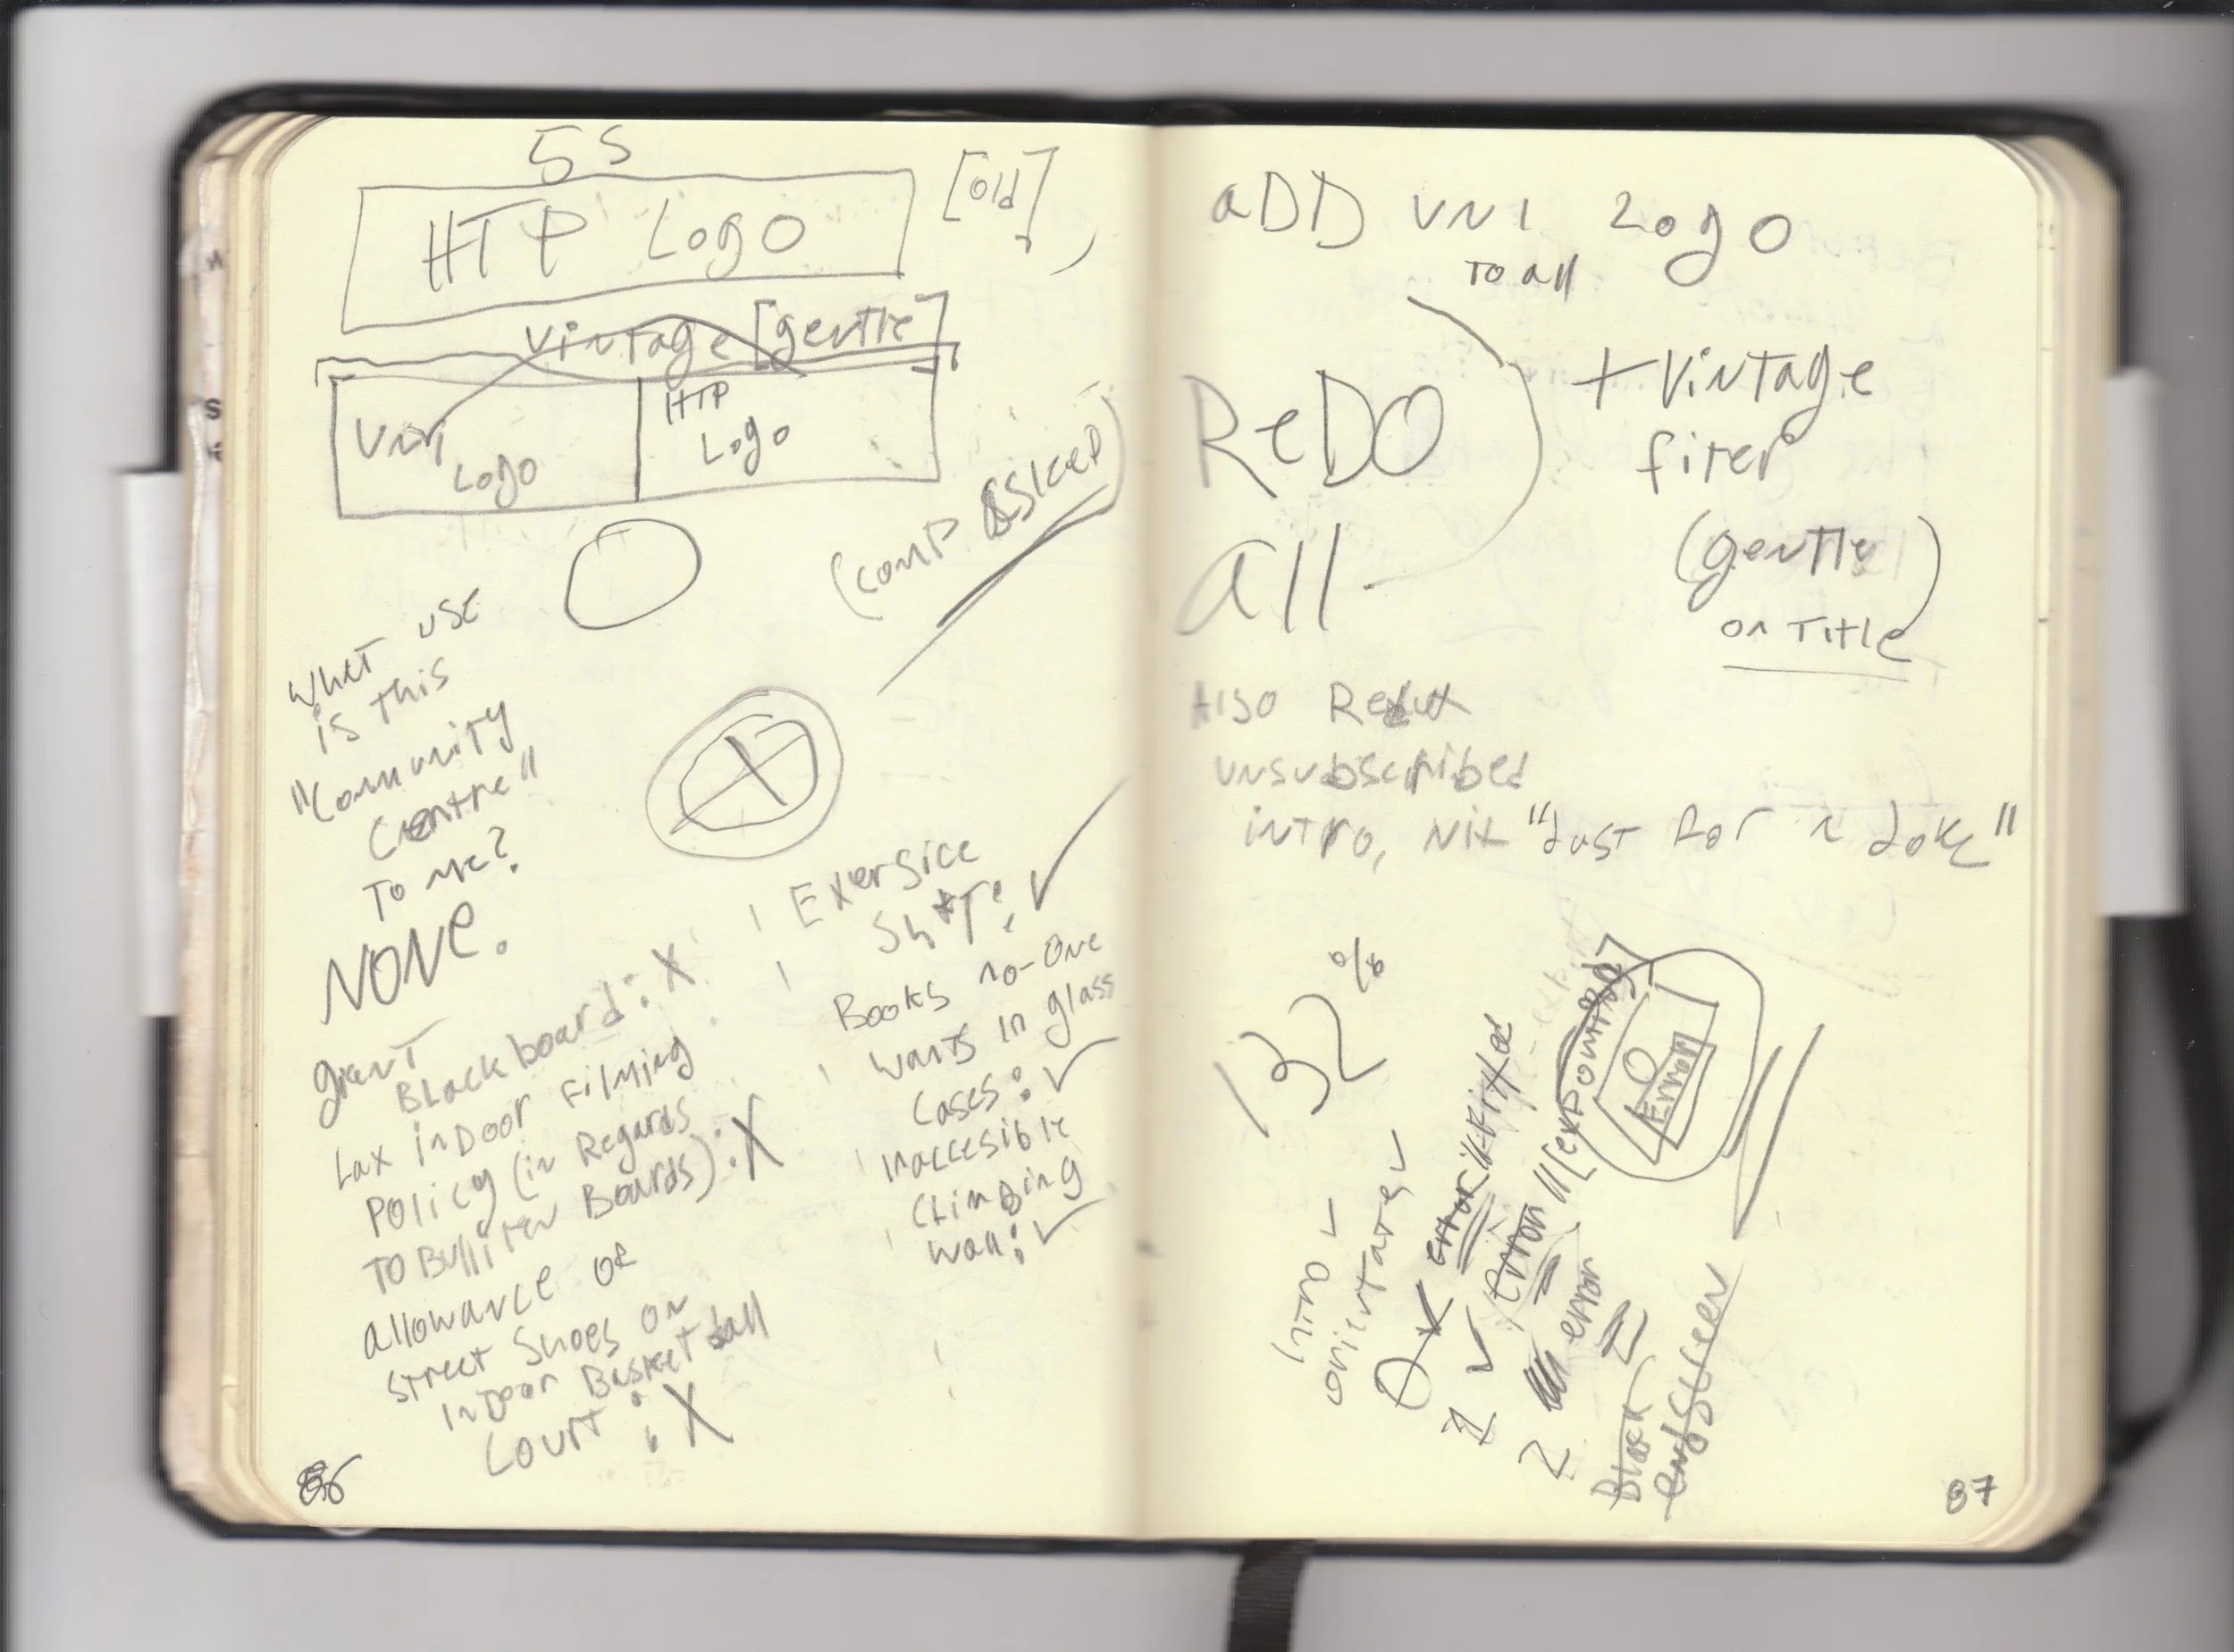 5s
HTP Logo
[old]
vintage [gentle]
Logo
HTP
Logo
What use
is this
"Community
Centre"
To me?
NONE.
giant
Blackboard: X
Lax inDoor Filming
Policy (in Regards
To Bulliten Boards): X
allowance of
Street Shoes on
inDoor Basketball
Court: X
Exersice
Sh*T: ✓
Books no-one
wants in glass
Cases: ✓
inaccesible
Climbing
wall: ✓
86
aDD VNI Logo
To all
ReDO
all
+ Vintage
filter
(gentle)
on Title
Also Redux
unsubscribed
intro, "Just for a Joke"
132%
Intro -
0 error
1 ✓ error [expounding]
Error
2 error
Black
endscreen
87